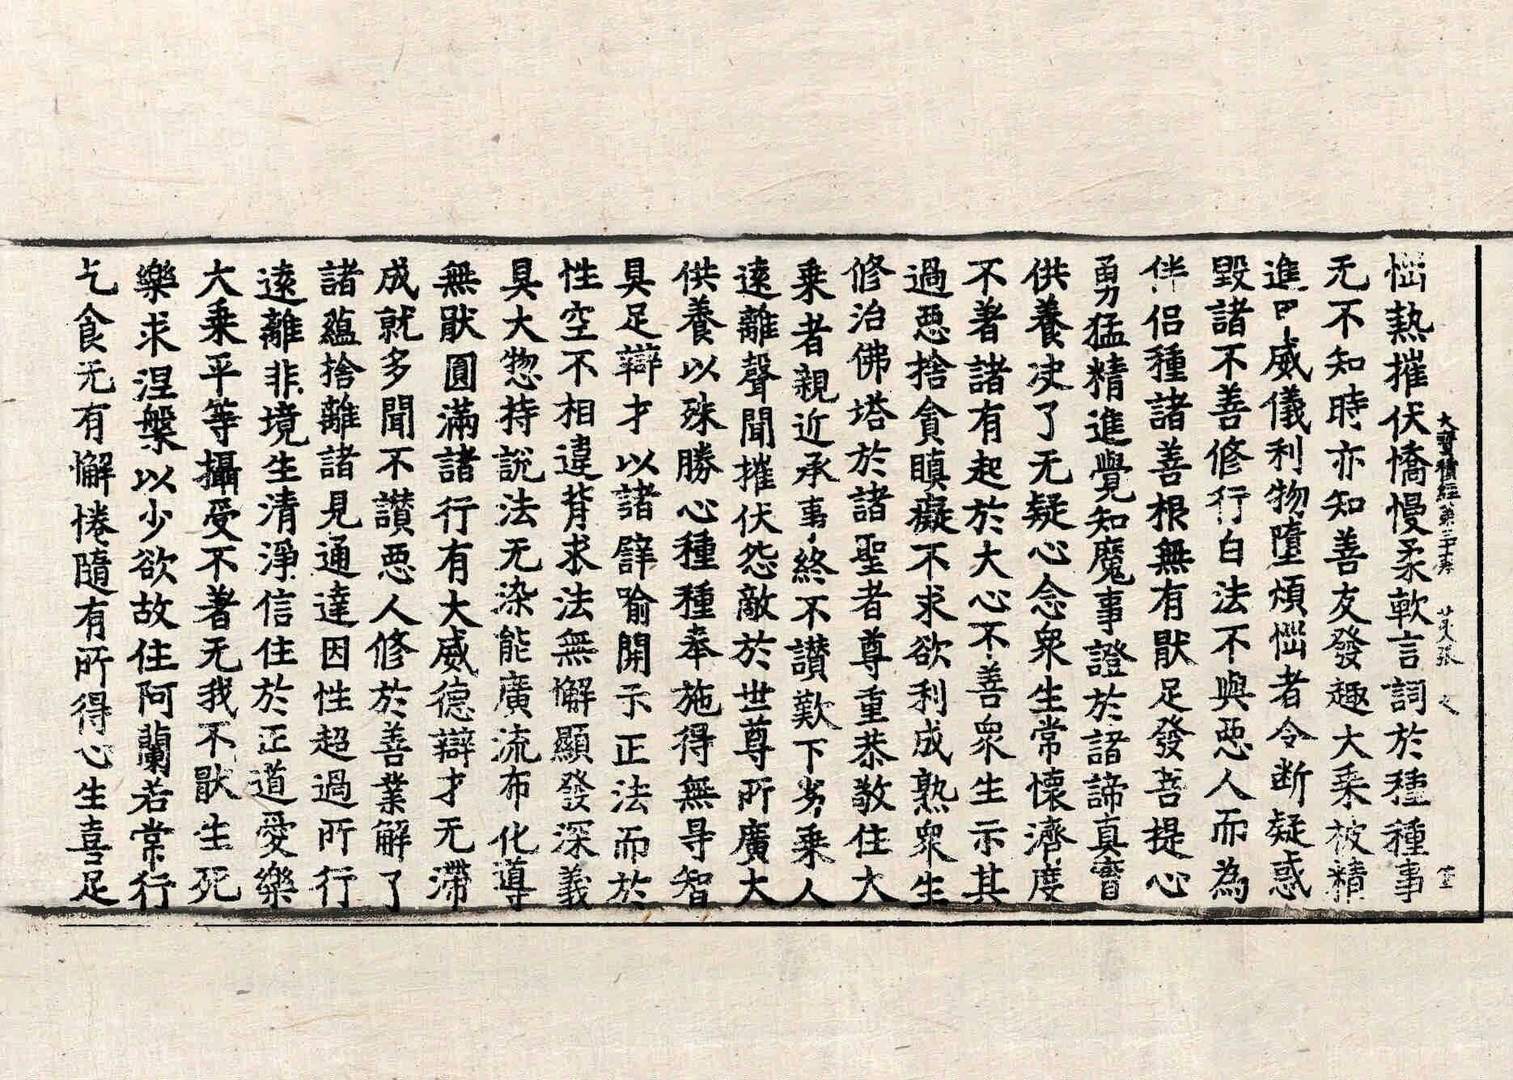 大寶積經第三十卷 第八張
惱熱摧伏憍慢柔軟言詞於種種事
无不知時亦知善友發趣大乘被精
進甲威儀利物墮煩惱者令断疑惑
毀諸不善修行白法不與惡人而為
伴侶種諸善根無有猒足發菩提心
勇猛精進覺知魔事證於諸諦真實
供養决了无疑心念衆生常懷濟度
不著諸有起於大心不善衆生示其
過惡捨貪瞋癡不求欲利成熟衆生
修治佛塔於諸聖者尊重恭敬住大
乘者親近承事終不讃歎下劣乘人
遠離聲聞摧伏怨敵於世尊所廣大
供養以殊勝心種種奉施得無导智
具足辯才以諸譬喻開示正法而於
性空不相違背求法無懈顯發深義
具大惣持說法无染能廣流布化導
無猒圓滿諸行有大威德辯才无滯
成就多聞不讃惡人修於善業解了
諸蘊捨離諸見通達因性超過所行
遠離非境生清淨信住於正道愛樂
大乘平等攝受不著无我不猒生死
樂求涅槃以少欲故住阿蘭若常行
乞食无有懈惓隨有所得心生喜足